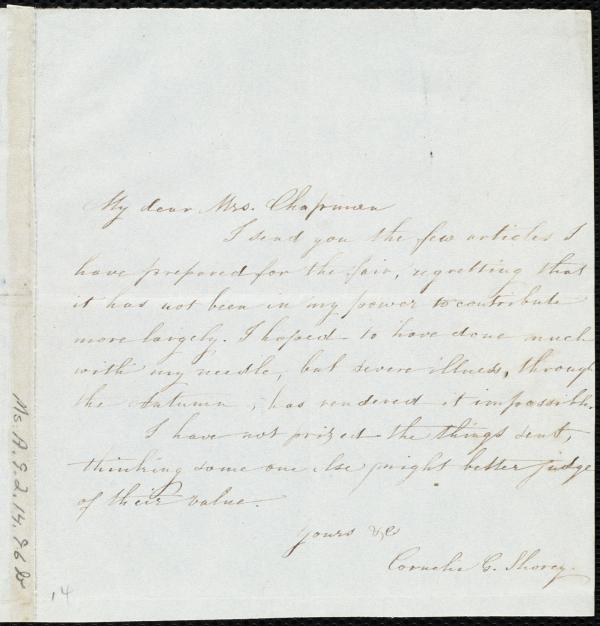 My dear Mrs. Chapman
I send you the few articles I
have prepared for the fair, regretting that
it has not been in my power to contribute
more largely. I hoped to have done much
with my needle, but severe illness, through
the Autumn, has rendered it impossible.
I have not prized the things sent,
thinking some one else might better judge
of their value.
Yours &c
Cornelia C. Shorey.
Ms. A. 9. 2. 14. 76
14